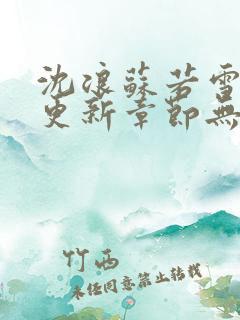 沈浪蘇若雪
更新章節無
竹西
未任同意禁止转载